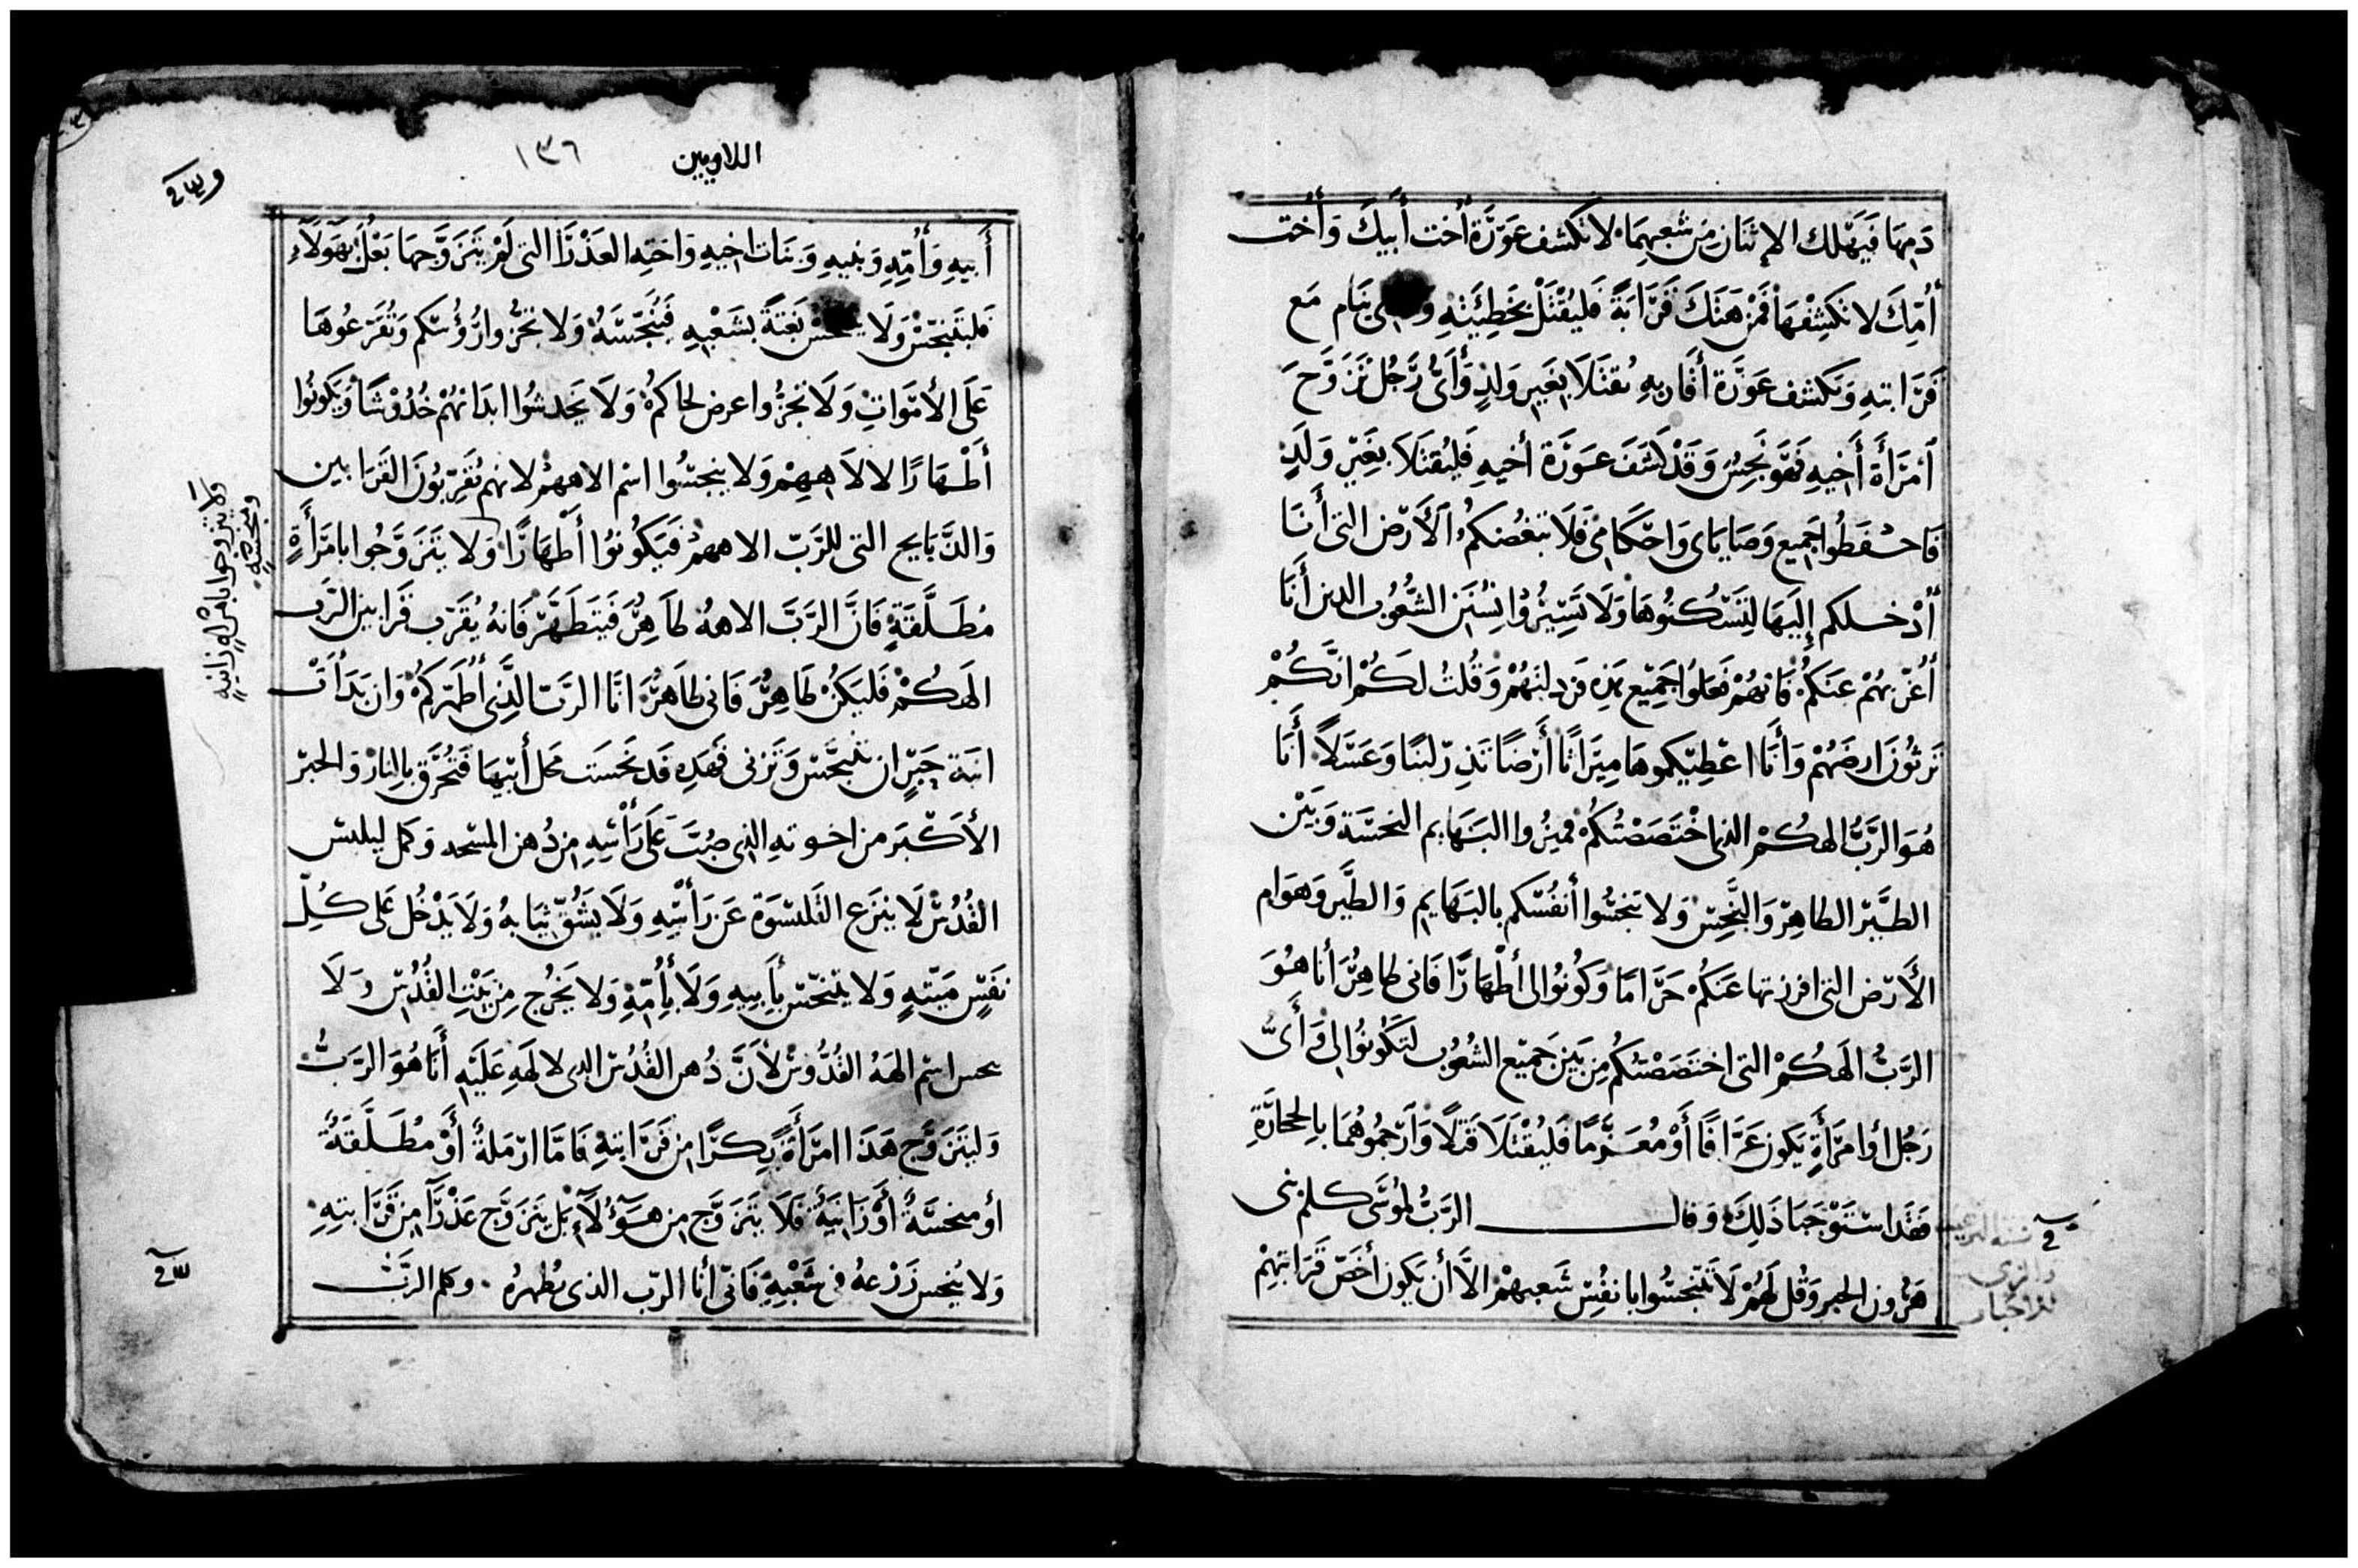 دمها فيهلك الاثنان من شعبهما لا تكشف عورة أخت أبيك وأخت
أمك لا تكشفها فمن هتك قرابة فليقتل بخطيئته ينام مع
قرابته وتكشف عورة أقاربه يقتلا بغير ولد وأي رجل تزوج
امرأة أخيه فهو نجس وقد كشف عورة أخيه فليقتلا بغير ولد
فاحفظوا جميع وصاياي واحكامي فلا تبغضكم الأرض التي أنا
أدخلكم إليها لتسكنوها ولا تسيروا بسنن الشعوب الذين أنا
أعريهم عنكم فانهم فعلوا جميع هذه وقلت لكم انكم
ترثون ارضهم وأنا اعطيكموها ميراثا أرضا تذر لبنا وعسلا أنا
هو الرب الهكم الذي اختصصتكم فميزوا البهايم النجسة وبين
الطير الطاهر والنجس ولا تنجسوا أنفسكم بالبهايم والطير وهوام
الأرض التي افرزتها عنكم حراما وكونوا لي أطهارا فاني طاهر أنا هو
الرب الهكم التي اختصصتكم من بين جميع الشعوب لتكونوا لي وأي
رجل أوا مرأة يكون عرافا أو معزما فليقتلا قتلا وارجموهما بالحجارة
فقد استوجبا ذلك وقال الرب لموسى كلم بني
هرون الحبر وقل لهم لا تتنجسوا بانفس شعبهم الا أن يكون أخص قرابتهم
اللاويين ١٣٦
أبيه وأمه وبنيه وبنات اخيه واخته العذرا التي لم يتزوجها بعل بهولاء
فليتنجس ولا بغتة بشعبه فينجسه ولا تجزوا رؤسكم وتقرعوها
على الأموات ولا تجزوا عرض لحاكم ولا يخدشوا ابدانهم خدوشا ويكونوا
أطهارا لالاههم ولا ينجسوا اسم الاههم لانهم يقربون القرابين
والذبايح التي للرب الاههم فيكونوا أطهارا ولا يتزوجوا بامرأة
مطلقة فان الرب الاهه طاهر فيتطهر فانه يقرب قرابين الرب
الهكم فليكن طاهر فاني طاهر انا الرب الذي أطهركم وان بدأت
ابنة حبر ان تتنجس وتزني فهده قد نجست محل أبيها فتحرق بالنار والحبر
الأكبر من اخوته الذي صب على رأسه من دهن المسحه وكمل ليلبس
القدس لا ينزع القلنسوة عن رأسه ولا يشق ثيابه ولا يدخل على كل
نفس ميتة ولا يتنجس بأبيه ولا بأمه ولا يخرج من بيت القدس ولا
ينجس اسم الهه القدوس لأن دهن القدس الذي لالهه عليه أنا هو الرب
وليتزوج هذا امرأة بكرا من قرابته فاما ارملة أو مطلقة
أو منجسة أو زانية فلا يتزوج من هؤلاء بل يتزوج عذرا من قرابته
ولا ينجس زرعه في شعبه فاني أنا الرب الذي يطهره وكلم الرب
ولا يتزوجوا بامرأة زانية
ومنجسة